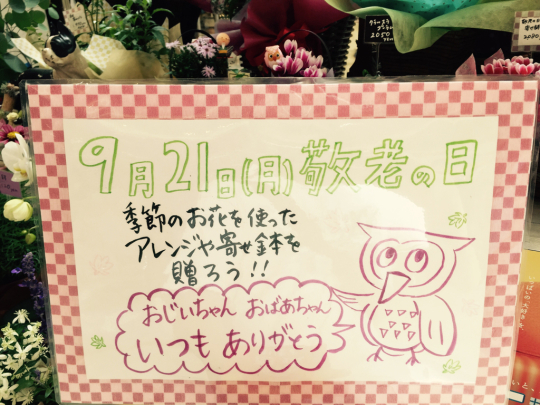 9月21日(月)敬老の日
季節のお花を使った
アレンジや寄せ鉢を
贈ろう!!
おじいちゃん おばあちゃん
いつも ありがとう
2050